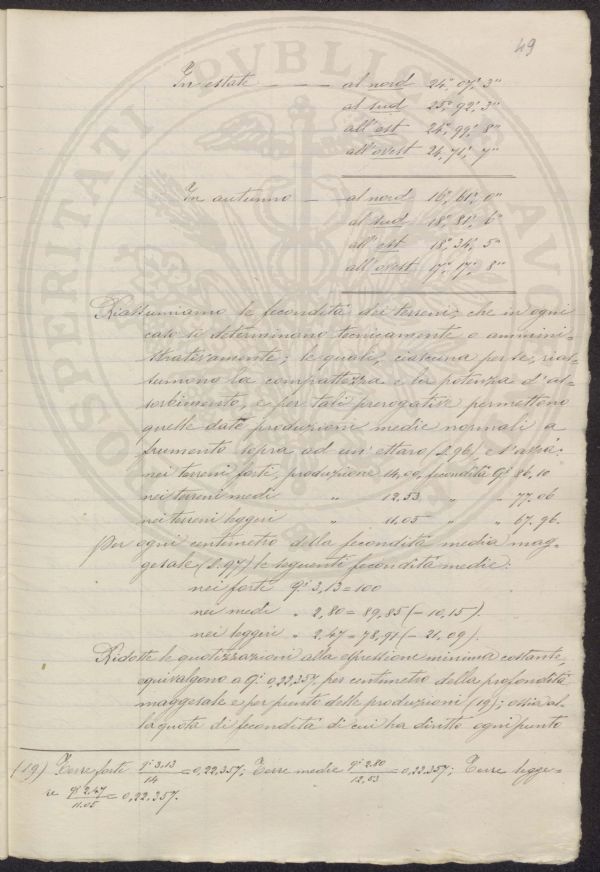 49
In estate — — — al nord 24°, 07', 3"
al sud 25°, 92', 3"
all'est 24°, 99', 8"
all'ovest 24, 71', 7"
In autunno — al nord 16°, 61', 0"
al sud 18°, 81', 6"
all'est 18°, 34', 5"
all'ovest 17°, 17', 8"
Riassumiamo le fecondità dei terreni, che in ogni
caso si determinano tecnicamente e ammini-
strativamente; le quali, ciascuna per se, rias-
sumono la compattezza e la potenza d'as-
sorbimento, e per tali prerogative permettono
quelle date produzioni medie normali a
frumento sopra ad un'ettaro (§.96) e s'avrà:
nei terreni forti, produzione 14,00, fecondità Q.i 86,10
nei terreni medi " 12.53 " " 77.06
nei terreni leggeri " 11.05 " " 67.96.
Per ogni centimetro della fecondità media mag-
gesale (§.97) le seguenti fecondità medie:
nei forti q.i 3,13 = 100
nei medi " 2,80 = 89,85 (- 10,15).
nei leggeri " 2.47 = 78,91 (- 21,09).
Ridotte le quotizzazioni alla espressione minima costante,
equivalgono a Q.i 0,22.357 per centimetro della profondità
maggesale e per punto delle produzioni (19); ossia al-
la quota di fecondità di cui ha diritto ogni punto
(19) Terre forti q.i 3,13 / 14 = 0,22,357; Terre medie q.i 2.80 / 12,53 = 0,22.357; Terre legge-
re q.i 2.47 / 11.05 = 0,22.357.
PROSPERITATI PVBLICAE AVGENDAE